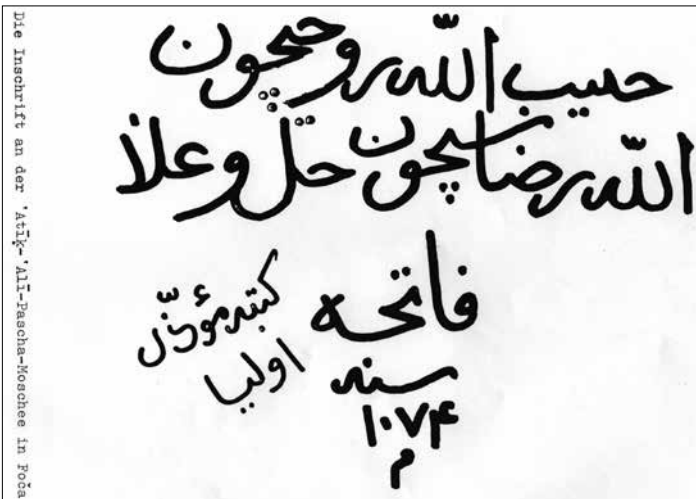 حبيب الله روحيچون
الله رضاسيچون جل و علا
فاتحه
سنه
۱۰۷۴
م
كتبه مؤذّن
اوليا
Die Inschrift an der 'Atīḳ-'Alī-Pascha-Moschee in Foča